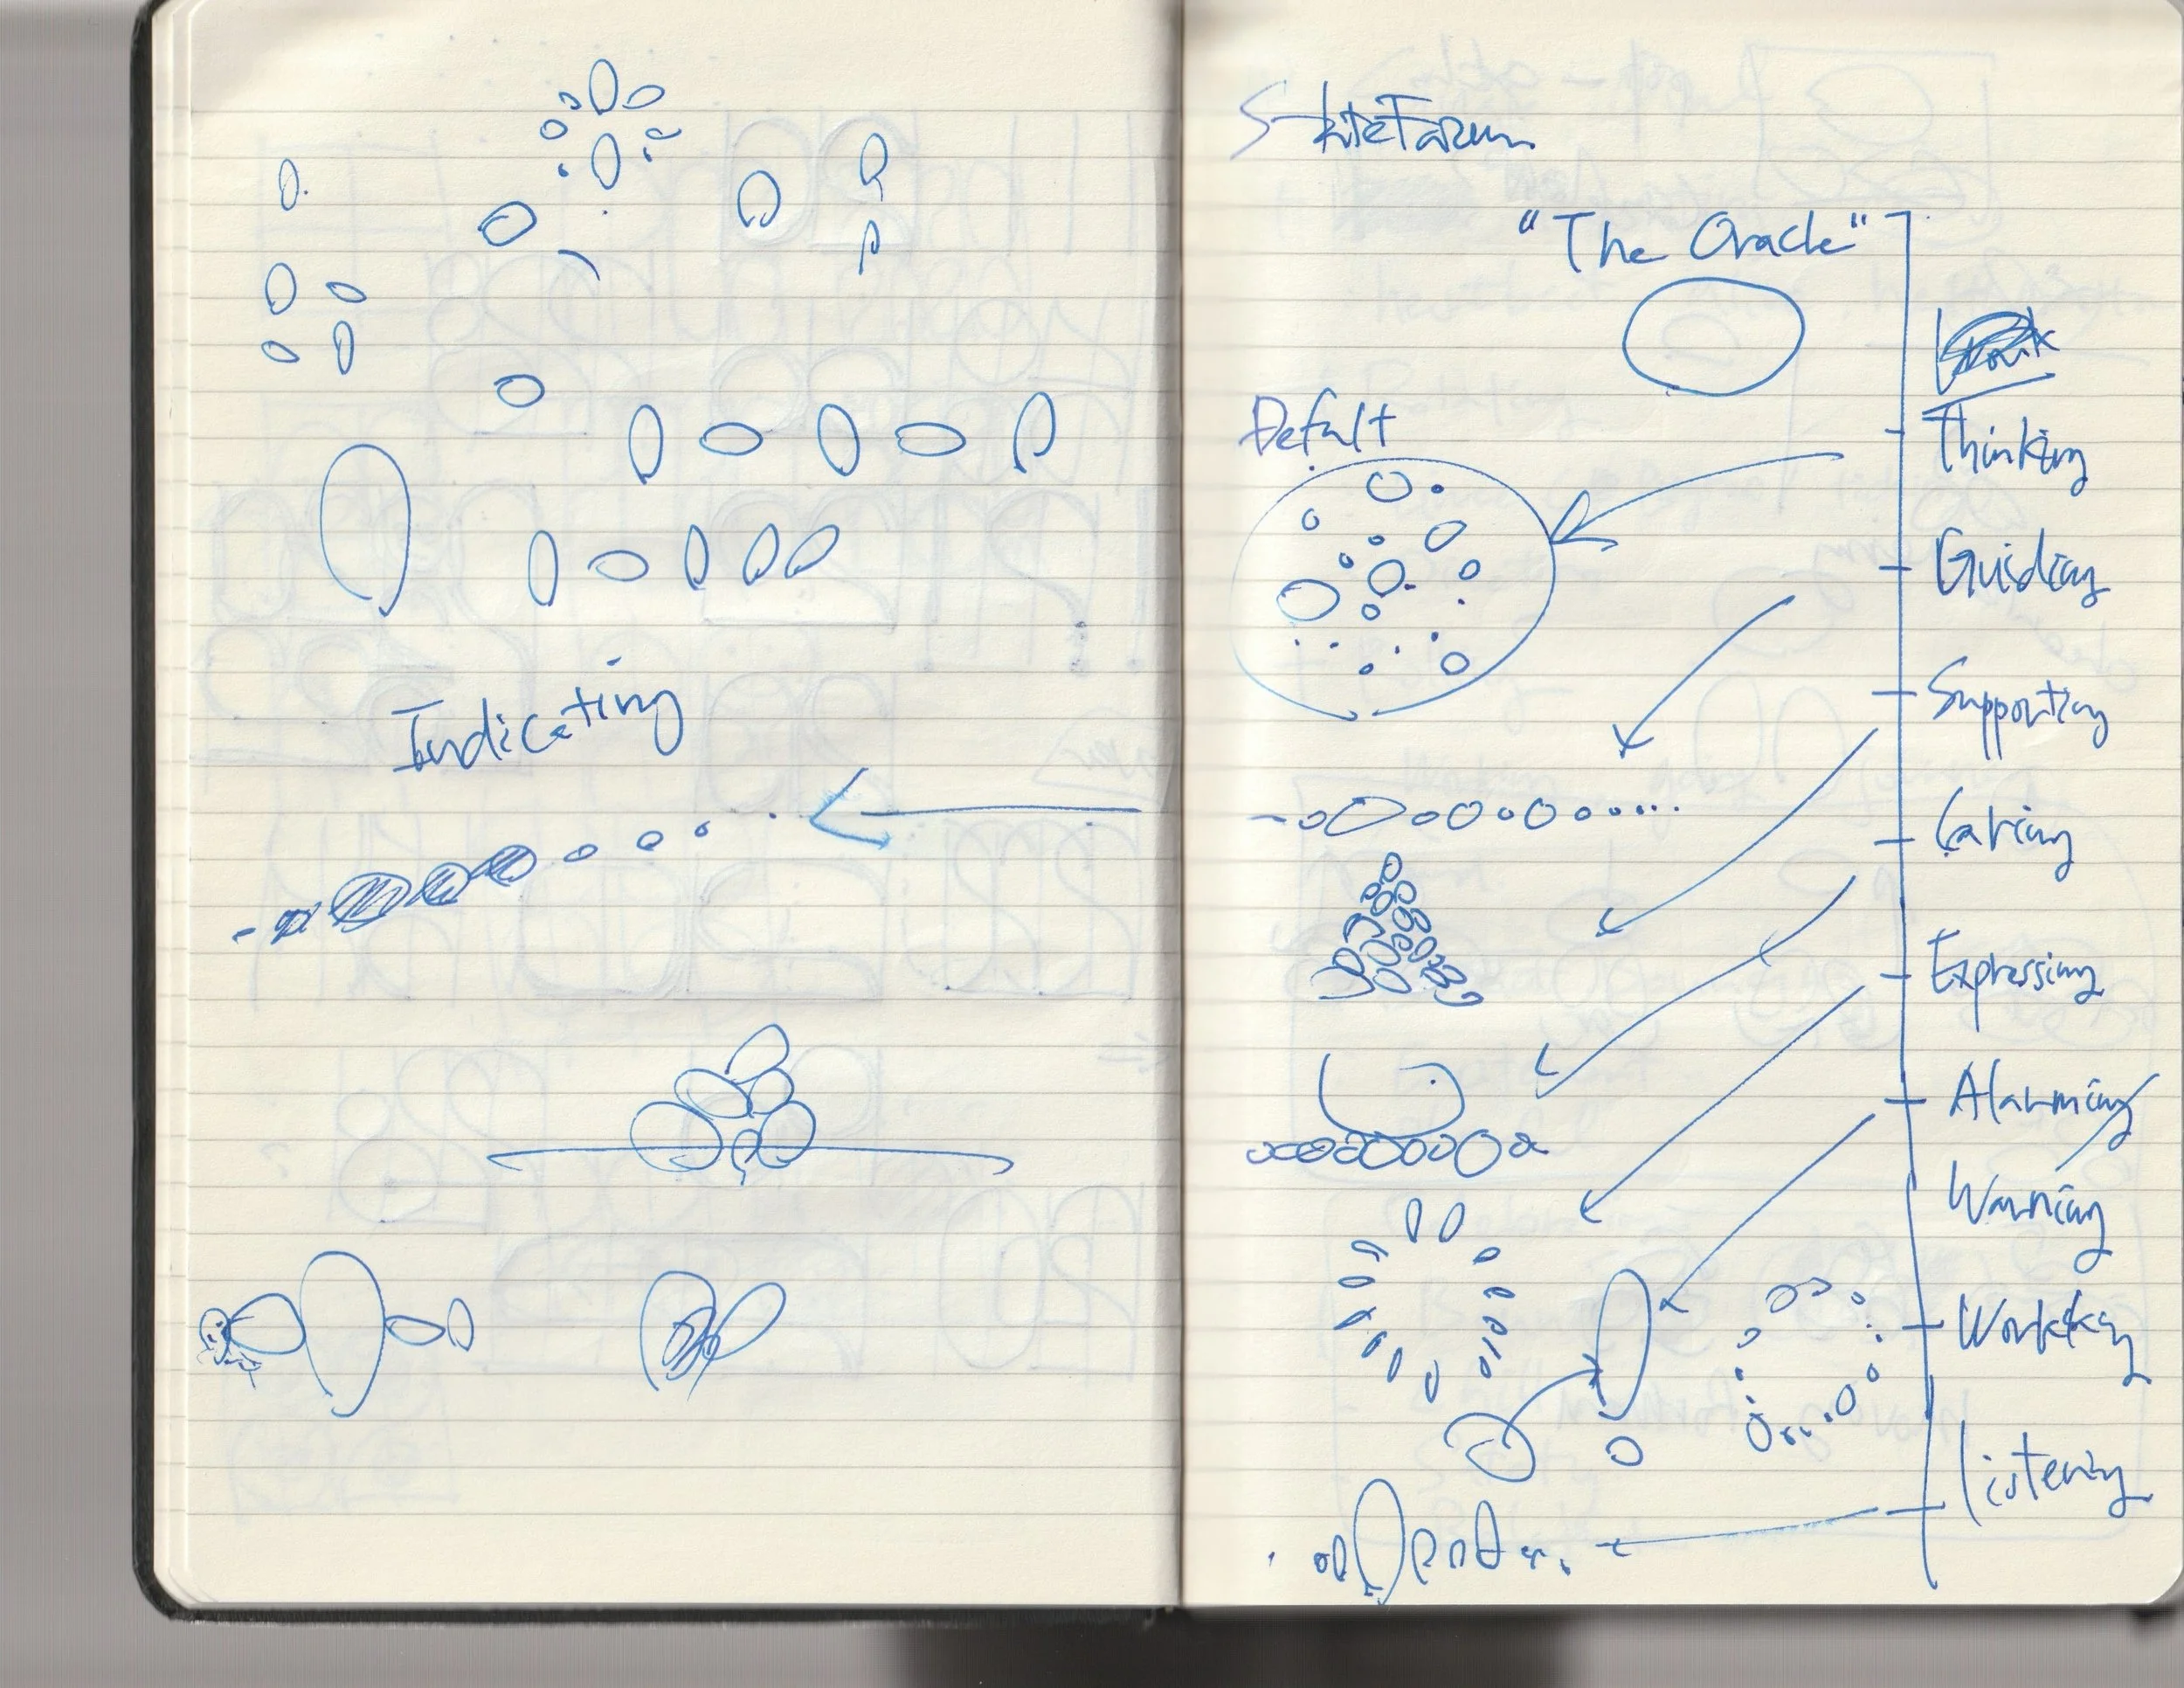 Indicating
StateFarm
"The Oracle"
Defalt
Thinking
Guiding
Supporting
Caring
Expressing
Alarming
Warning
Working
Listening